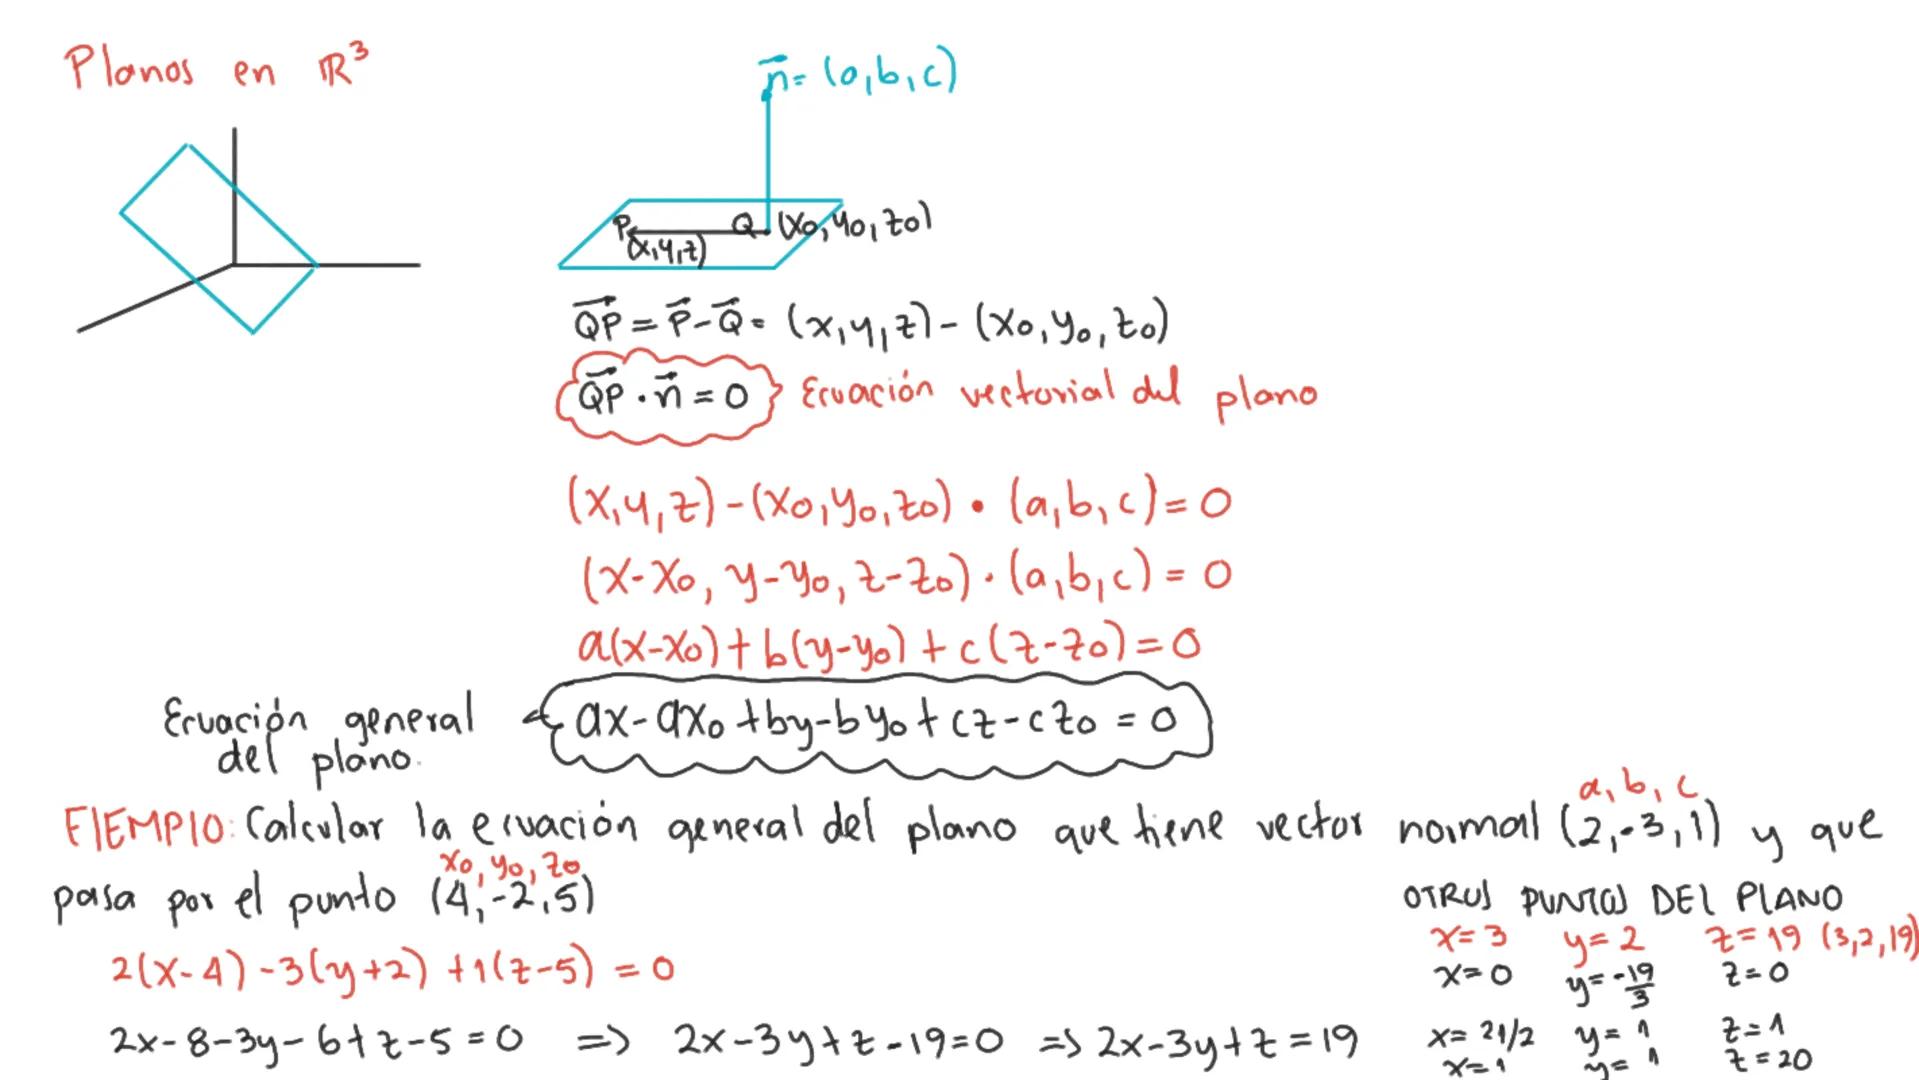 Planos en ℝ³
n⃗ = (a, b, c)
P
Q (x₀, y₀, z₀)
(x, y, z)
QP⃗ = P⃗ - Q⃗ = (x, y, z) - (x₀, y₀, z₀)
QP⃗ · n⃗ = 0 Ecuación vectorial del plano
(x, y, z) - (x₀, y₀, z₀) · (a, b, c) = 0
(x-x₀, y-y₀, z-z₀) · (a, b, c) = 0
a(x-x₀) + b(y-y₀) + c(z-z₀) = 0
Ecuación general
del plano.
ax - ax₀ + by - by₀ + cz - cz₀ = 0
a, b, c
EJEMPLO: Calcular la ecuación general del plano que tiene vector normal (2, -3, 1) y que
x₀, y₀, z₀
pasa por el punto (4, -2, 5)
2(x-4) -3(y+2) +1(z-5) = 0
2x - 8 - 3y - 6 + z - 5 = 0 => 2x - 3y + z - 19 = 0 => 2x - 3y + z = 19
OTROS PUNTOS DEL PLANO
x = 3 y = 2 z = 19 (3, 2, 19)
x = 0 y = -19/3 z = 0
x = 21/2 y = 1 z = 1
x = 1 y = 1 z = 20